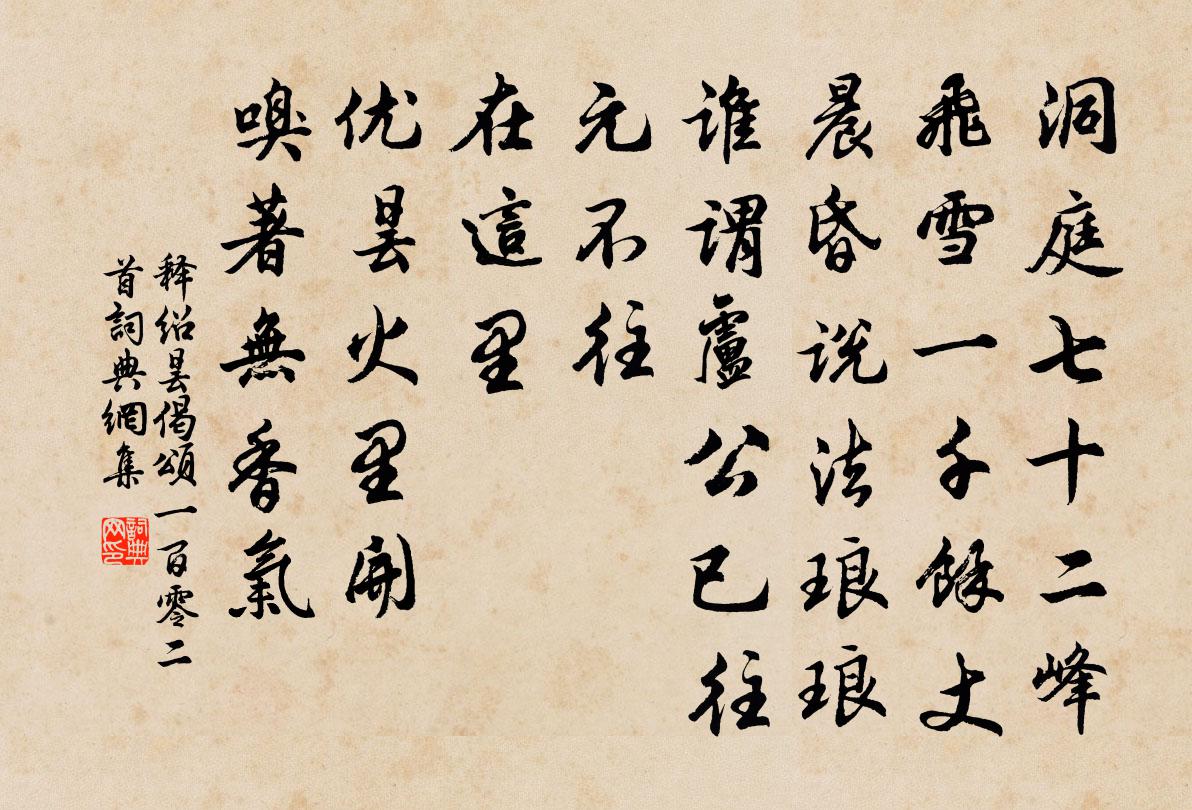 洞庭七十二峰
飛雪一千餘丈
晨昏説法琅琅
誰謂盧公已往
元不往
在這里
优昙火里開
嗅著無香氣
释绍昙偈頌一百零二
首詞典網集
詞典
网印